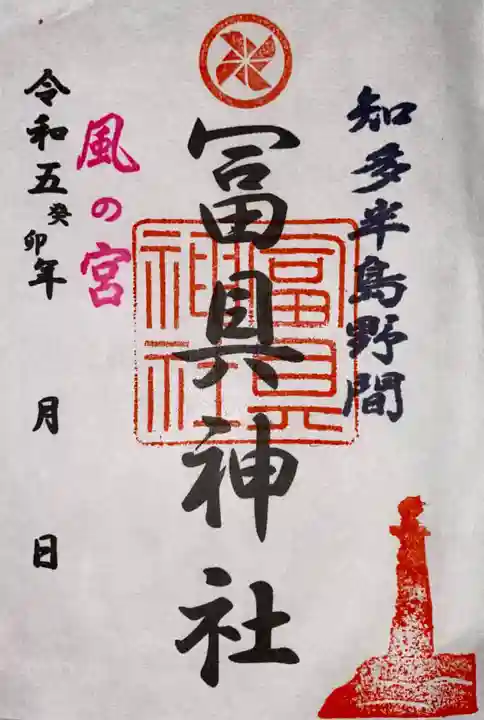 知多半島野間
冨具神社
冨具
神社
風の宮
令和五癸卯年 月 日